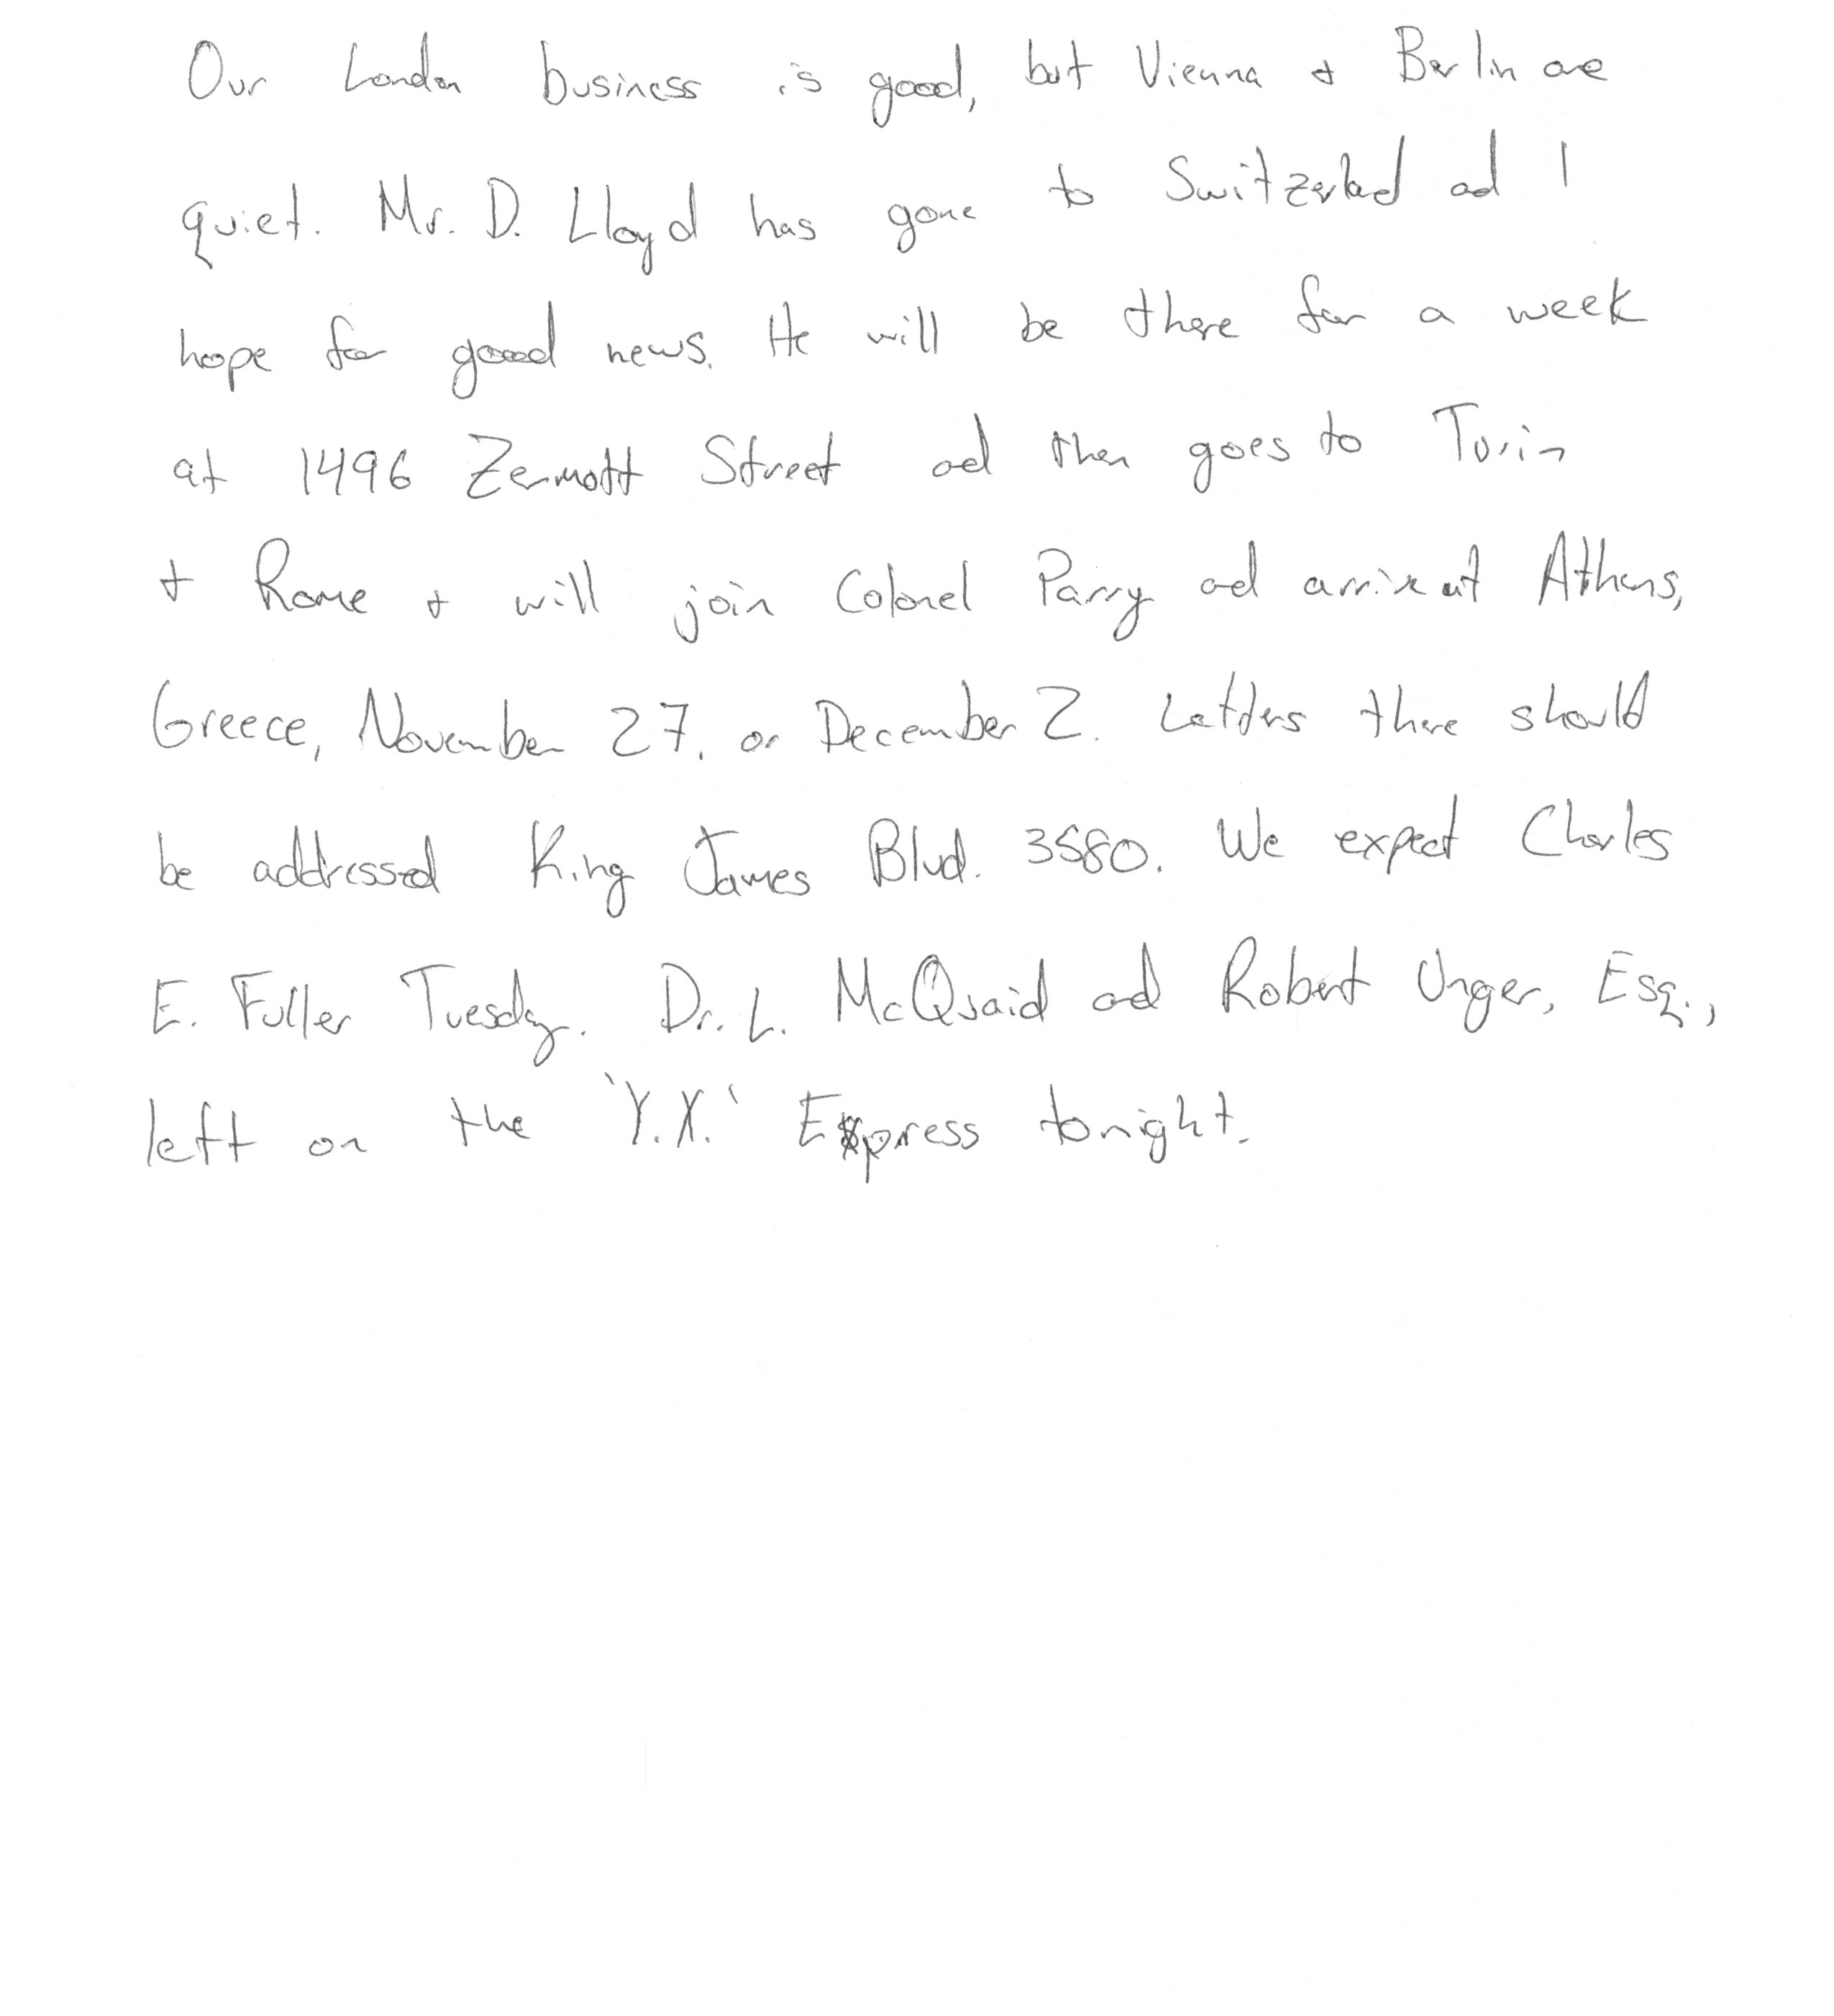 Our London business is good, but Vienna + Berlin are
quiet. Mr. D. Lloyd has gone to Switzerland and I
hope for good news. He will be there for a week
at 1496 Zermott Street and then goes to Turin
+ Rome + will join Colonel Parry and arrive at Athens,
Greece, November 27. or December 2. Letters there should
be addressed King James Blvd. 3580. We expect Charles
E. Fuller Tuesday. Dr. L. McQuaid and Robert Unger, Esq.,
left on the 'Y.X.' Express tonight.